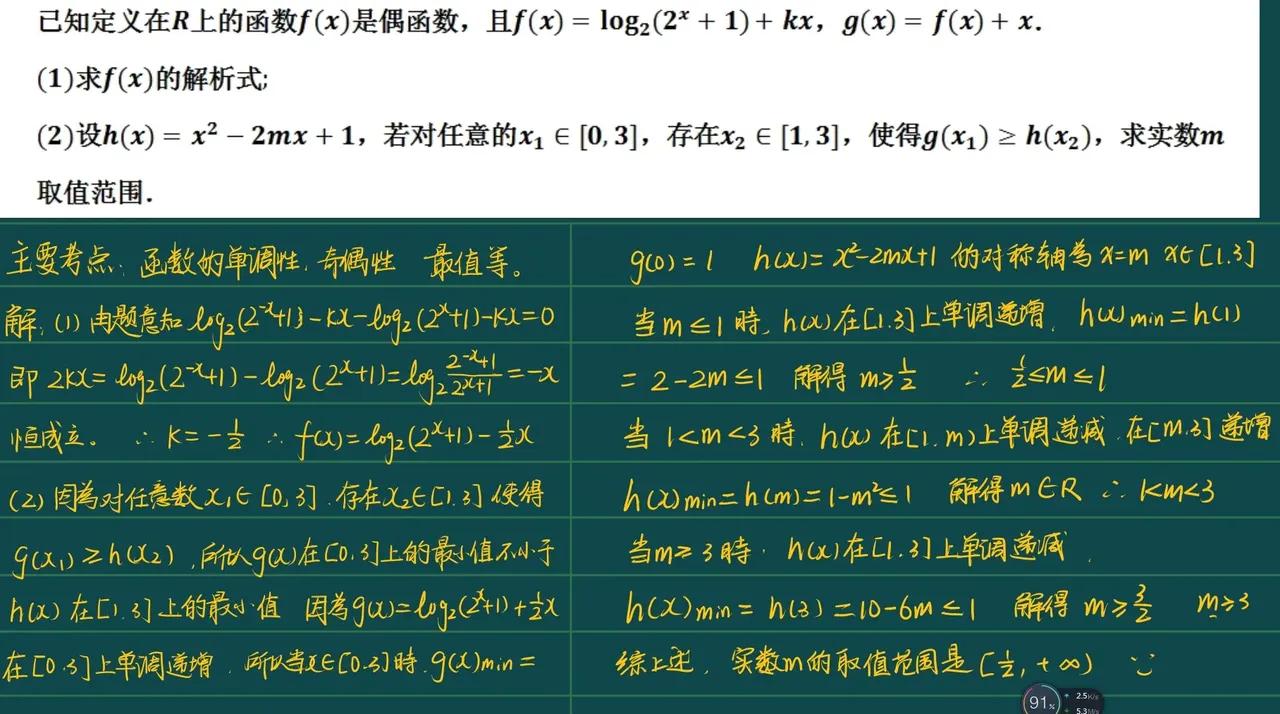 已知定义在R上的函数f(x)是偶函数，且f(x) = log₂(2ˣ + 1) + kx，g(x) = f(x) + x.
(1)求f(x)的解析式;
(2)设h(x) = x² − 2mx + 1，若对任意的x₁ ∈ [0,3]，存在x₂ ∈ [1,3]，使得g(x₁) ≥ h(x₂)，求实数m
取值范围.
主要考点：函数的单调性、奇偶性 最值等。
解：(1) 由题意知 log₂(2⁻ˣ+1)-kx-log₂(2ˣ+1)-kx=0
即 2kx=log₂(2⁻ˣ+1)-log₂(2ˣ+1)=log₂ (2⁻ˣ+1)/(2ˣ+1) =-x
恒成立。 ∴ k=-1/2 ∴ f(x)=log₂(2ˣ+1)-1/2x
(2) 因為对任意数x₁∈[0,3].存在x₂∈[1.3]使得
g(x₁)≥h(x₂)，所以g(x)在[0.3]上的最小值不小于
h(x)在[1.3]上的最小值 因為g(x)=log₂(2ˣ+1)+1/2x
在[0.3]上单调递增．所以当x∈[0.3]時.g(x)min=
g(0)=1 h(x)=x²-2mx+1 的对称轴為x=m x∈[1.3]
当m≤1時，h(x)在[1.3]上单调递增．h(x)min=h(1)
=2-2m≤1 解得 m≥1/2 ∴ 1/2≤m≤1
当 1<m<3時．h(x)在[1.m)上单调递减.在[m.3]递增
h(x)min=h(m)=1-m²≤1 解得m∈R ∴ 1<m<3
当m≥3時．h(x)在[1.3]上单调递减．
h(x)min=h(3)=10-6m≤1 解得 m≥3/2 m≥3
综上述，实数m的取值范围是[1/2,+∞)
91%
2.5K/s
5.3M/s